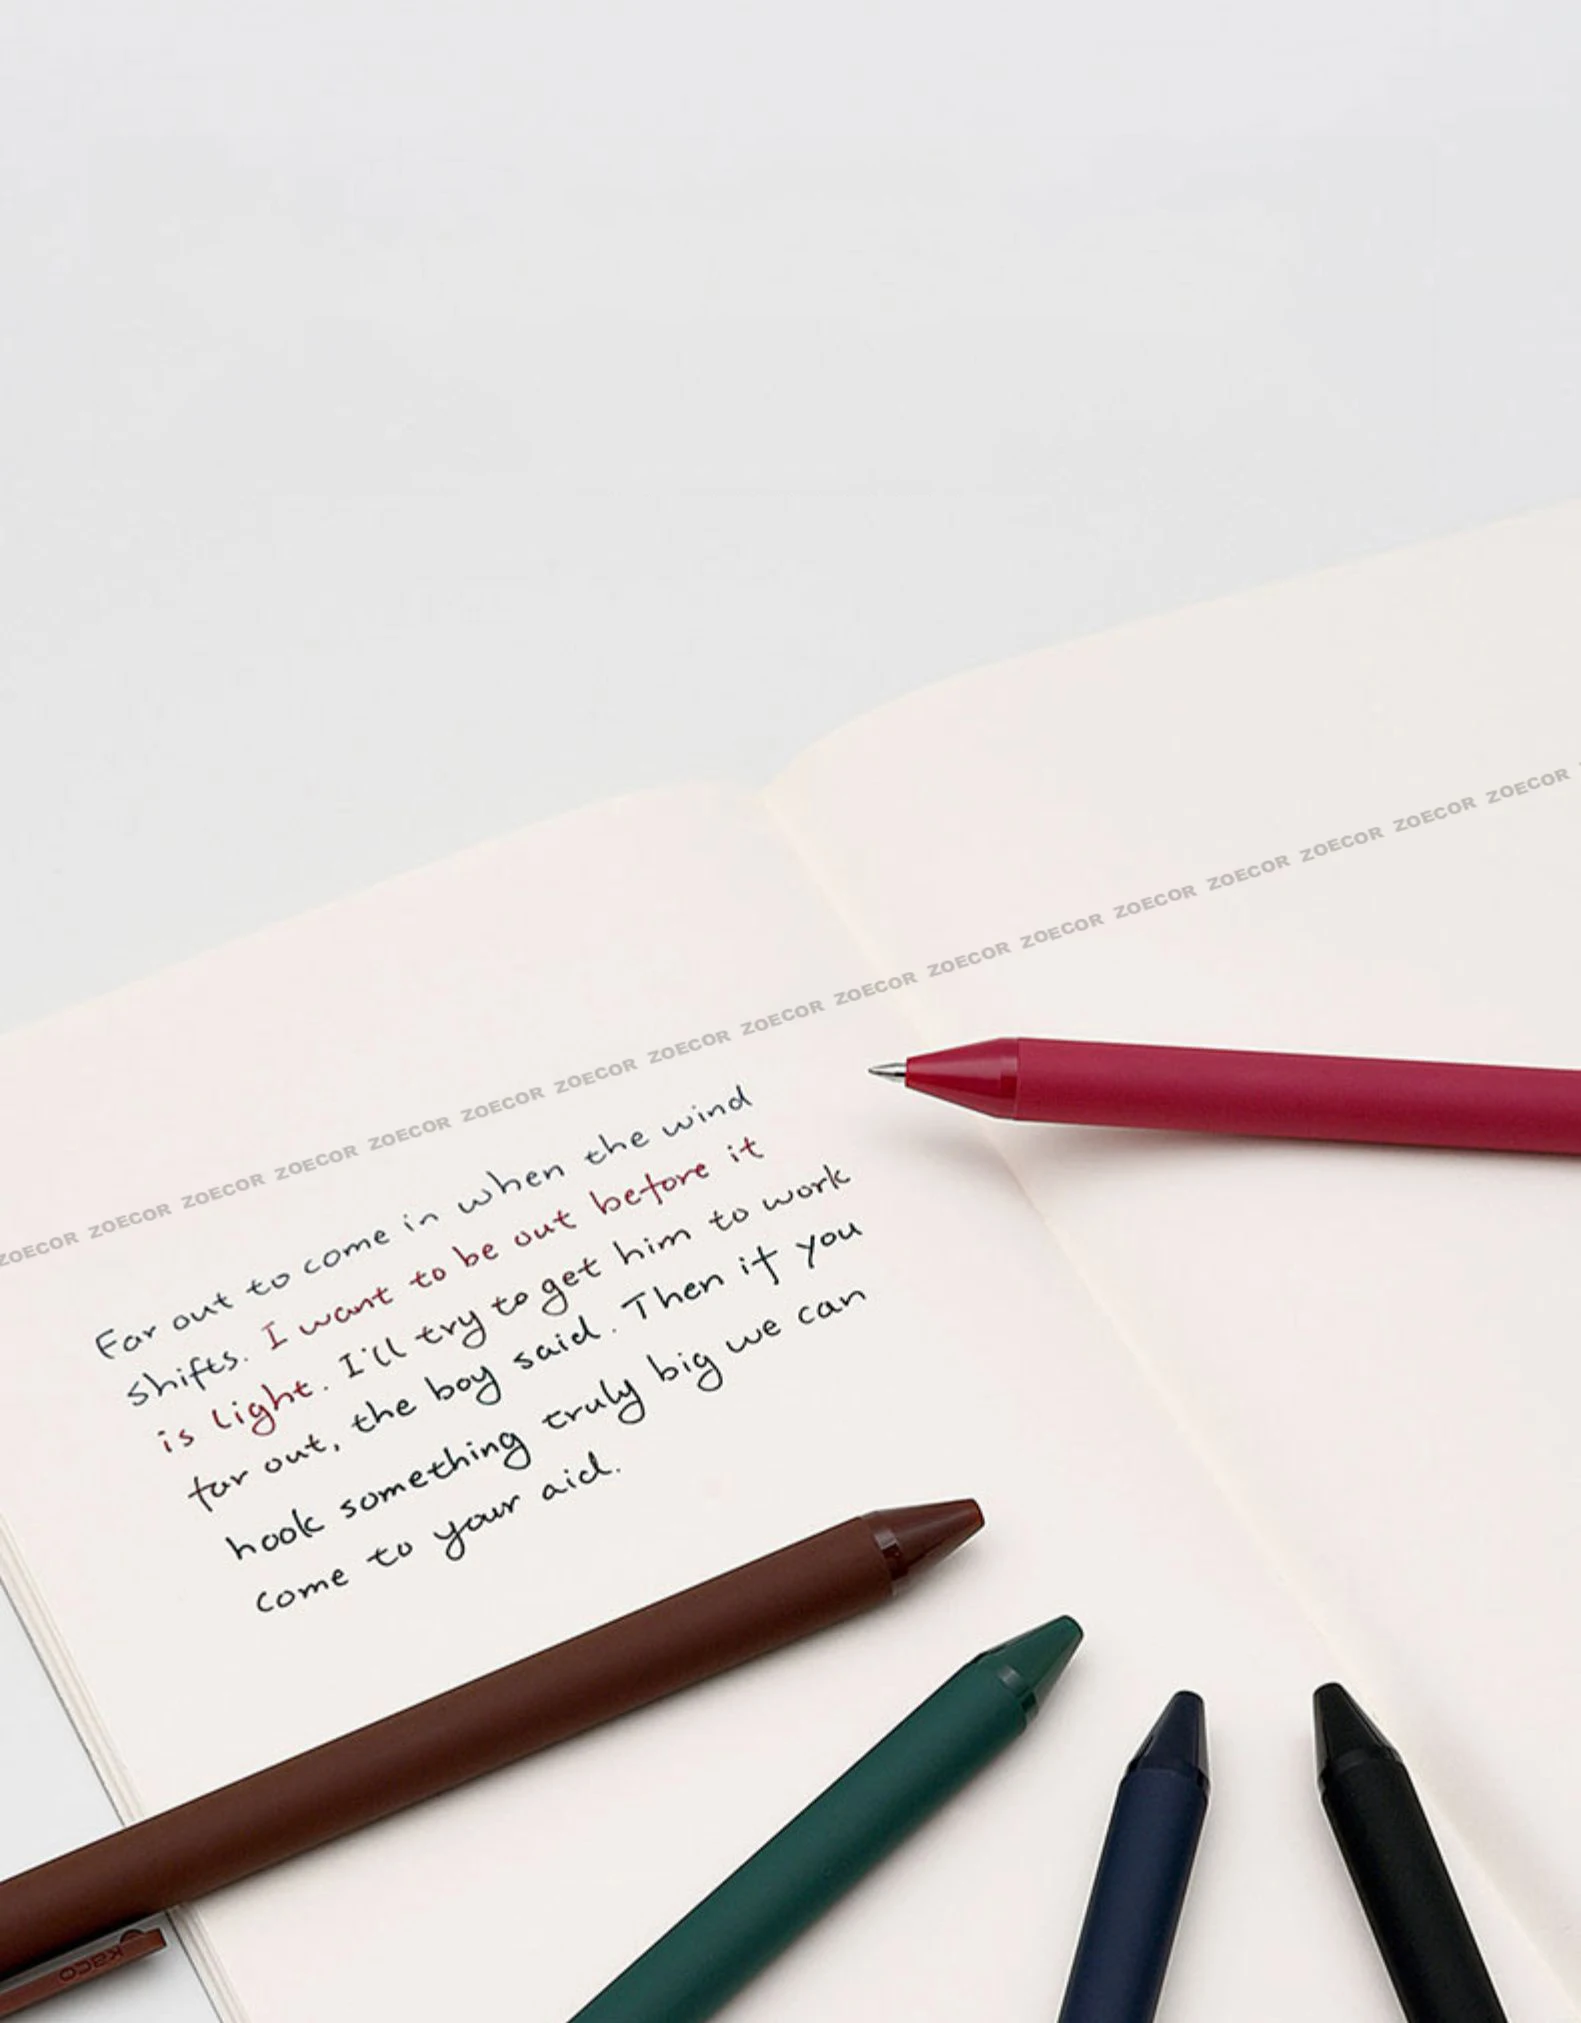 ZOECOR ZOECOR ZOECOR ZOECOR ZOECOR ZOECOR ZOECOR ZOECOR ZOECOR ZOECOR ZOECOR ZOECOR ZOECOR ZOECOR ZOECOR ZOECOR ZOECOR
Far out to come in when the wind
shifts. I want to be out before it
is light. I'll try to get him to work
far out, the boy said. Then if you
hook something truly big we can
come to your aid.
KACO